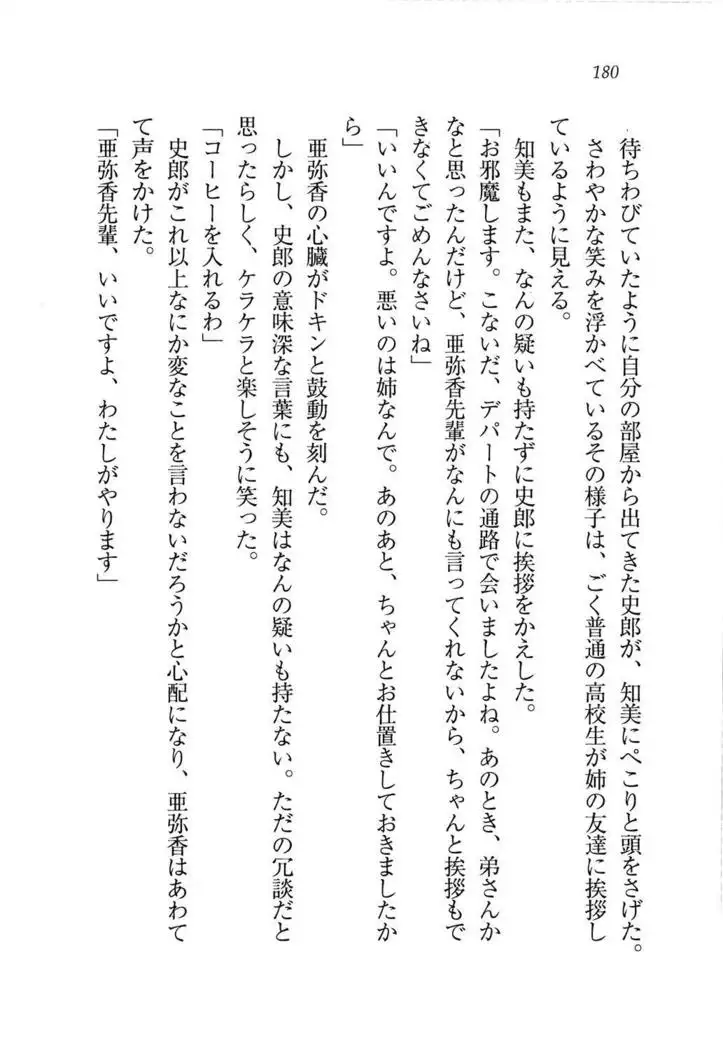 180
待ちわびていたように自分の部屋から出てきた史郎が、知美にぺこりと頭をさげた。
さわやかな笑みを浮かべているその様子は、ごく普通の高校生が姉の友達に挨拶し
ているように見える。
知美もまた、なんの疑いも持たずに史郎に挨拶をかえした。
「お邪魔します。こないだ、デパートの通路で会いましたよね。あのとき、弟さんか
なと思ったんだけど、亜弥香先輩がなんにも言ってくれないから、ちゃんと挨拶もで
きなくてごめんなさいね」
「いいんですよ。悪いのは姉なんで。あのあと、ちゃんとお仕置きしておきましたか
ら」
亜弥香の心臓がドキンと鼓動を刻んだ。
しかし、史郎の意味深な言葉にも、知美はなんの疑いも持たない。ただの冗談だと
思ったらしく、ケラケラと楽しそうに笑った。
「コーヒーを入れるわ」
史郎がこれ以上なにか変なことを言わないだろうかと心配になり、亜弥香はあわて
て声をかけた。
「亜弥香先輩、いいですよ、わたしがやります」